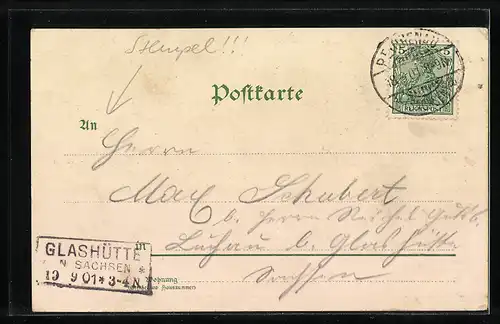 Stempel!!!
Postkarte
An
Herrn
Max Schubert
b. Herrn Reichel Gutsb.
in
Luchau b. Glashütte
Sachsen
Wohnung
GLASHÜTTE
SACHSEN *
19 9 01 * 3-4 N
REICHSPOST